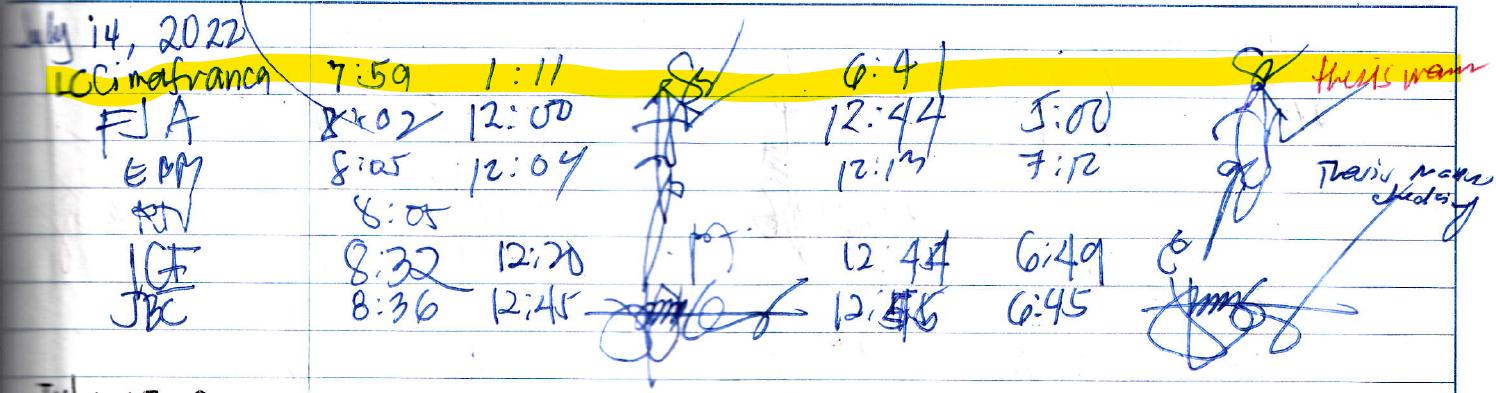 July 14, 2022
LCCimafranca 7:59 1:11 6:41 thesis
FJA 8:02 12:00 12:44 5:00
EMM 8:05 12:04 12:13 7:12 Thesis
8:05 checking
JGE 8:32 12:20 12:44 6:49
JBC 8:36 12:45 6:45